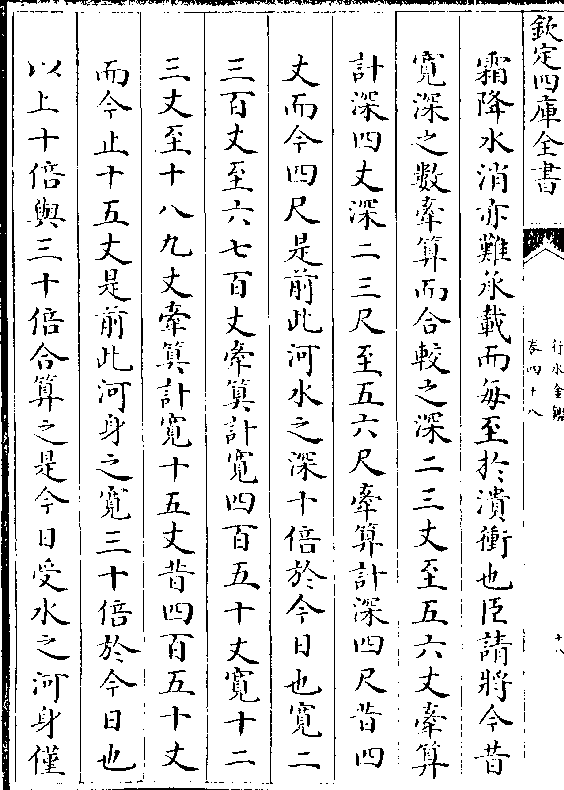 欽定四庫全書
行水金鑑
卷四十八
十八
霜降水消亦難承載而每至於潰衝也臣請將今昔
寛深之數牽算而合較之深二三丈至五六丈牽算
計深四丈深二三尺至五六尺牽算計深四尺昔四
丈而今四尺是前此河水之深十倍於今日也寛二
三百丈至六七百丈牽算計寛四百五十丈寛十二
三丈至十八九丈牽算計寛十五丈昔四百五十丈
而今止十五丈是前此河身之寛三十倍於今日也
以上十倍與三十倍合算之是今日受水之河身僅